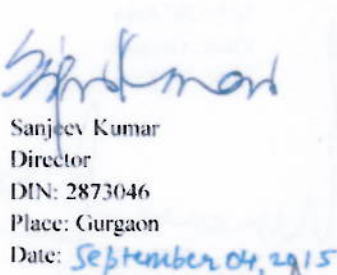 Sanjeev Kumar
Director
DIN: 2873046
Place: Gurgaon
Date: September 04, 2015